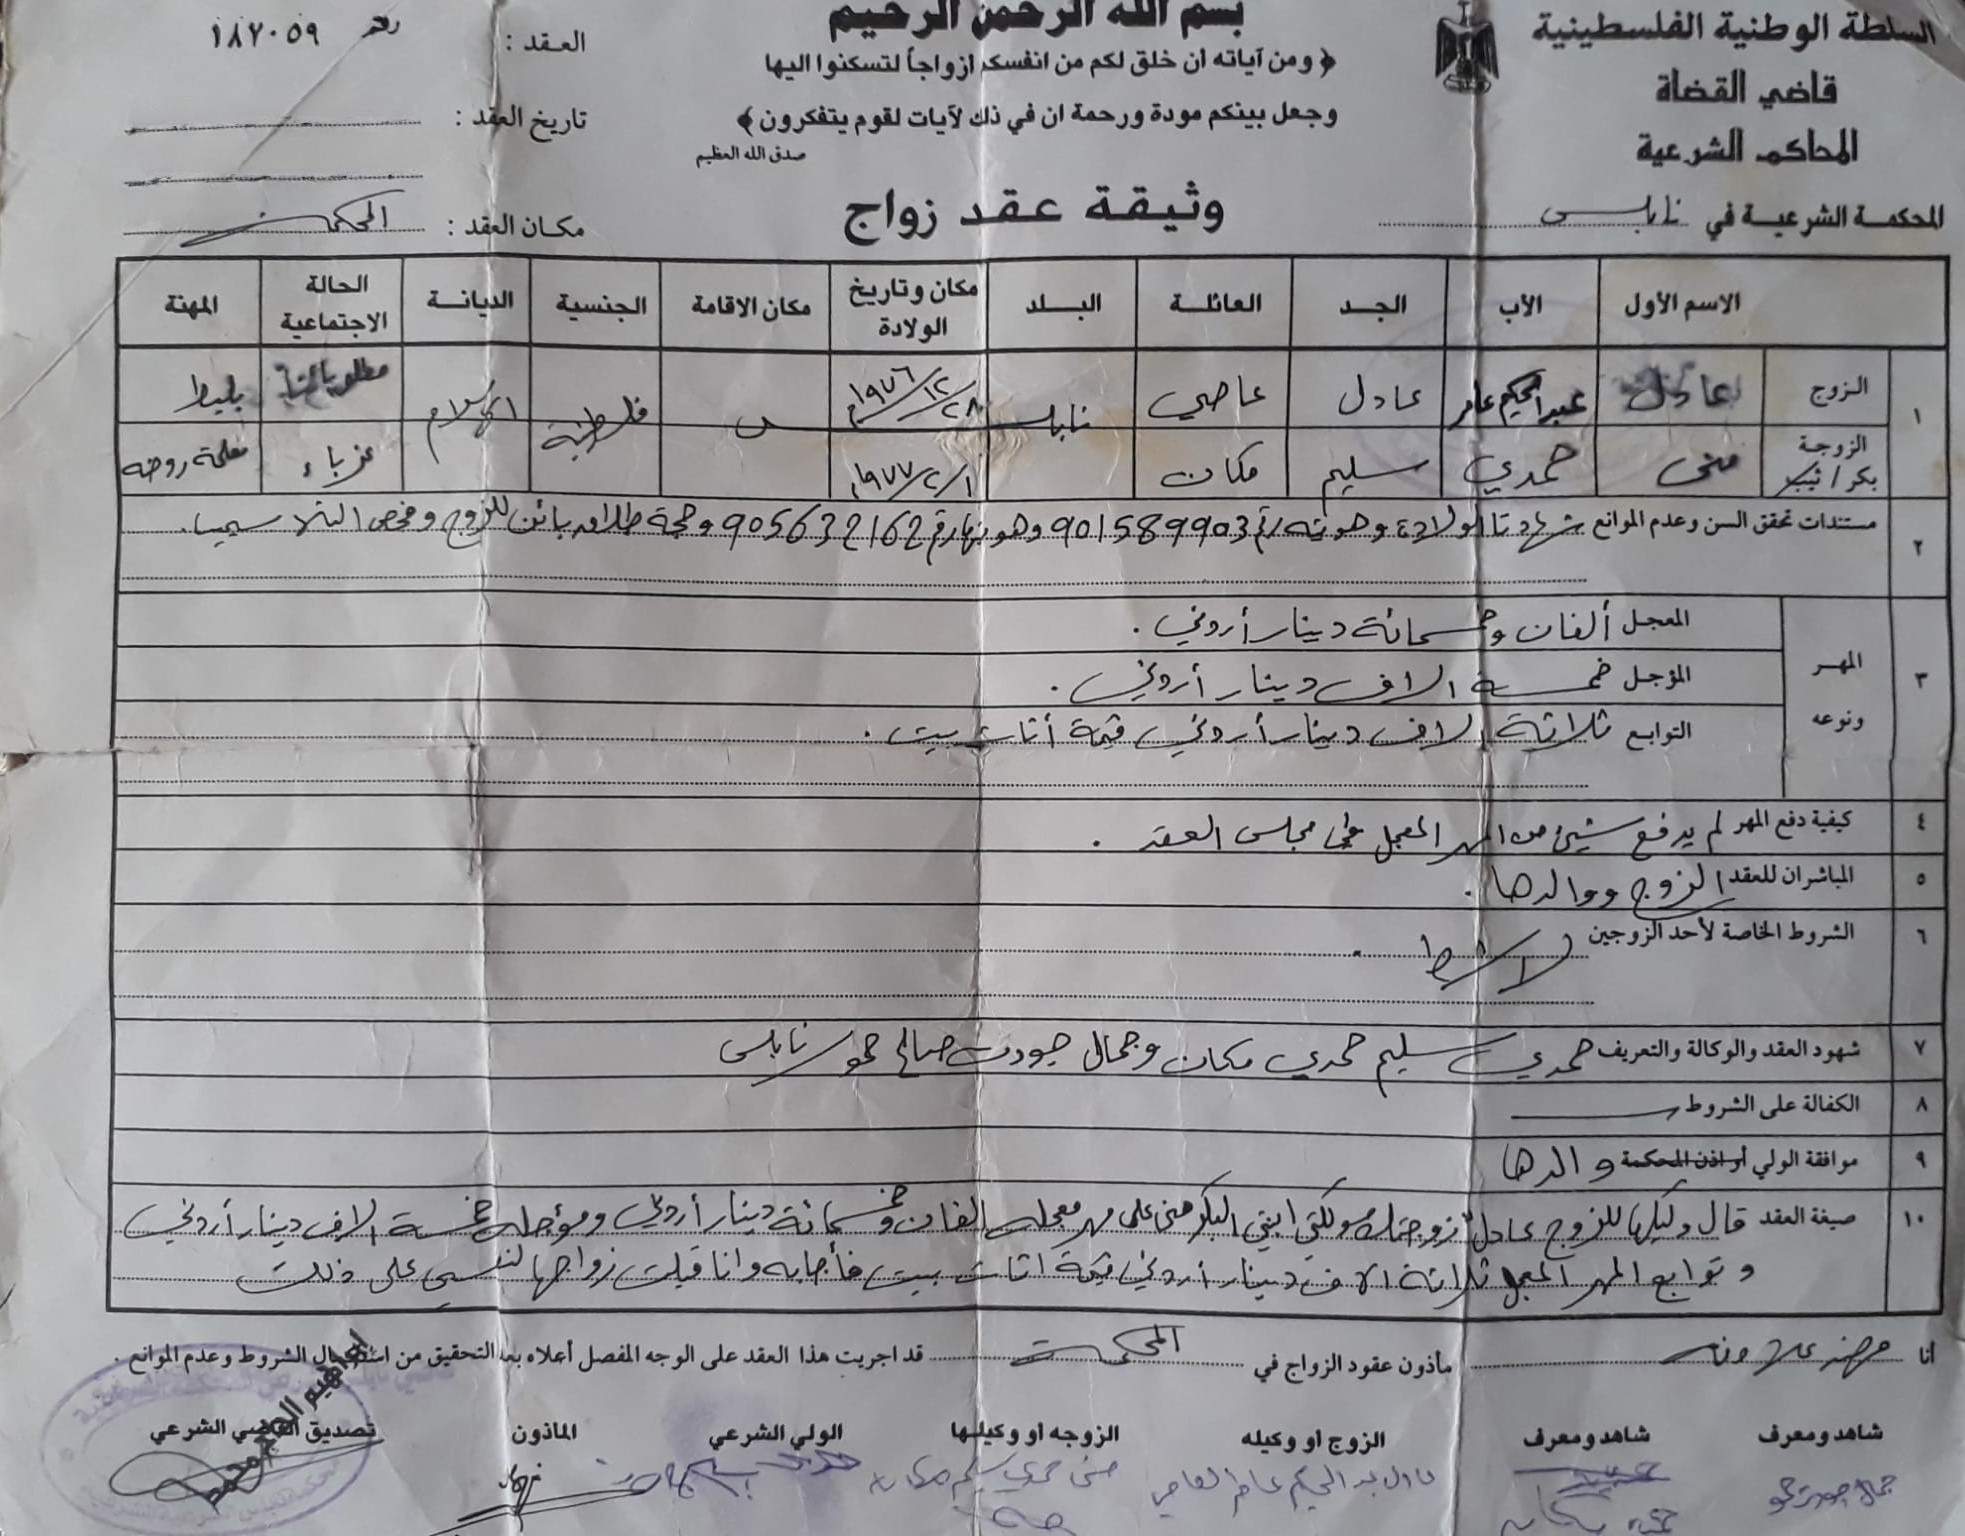 السلطة الوطنية الفلسطينية
قاضي القضاة
المحاكم الشرعية
المحكمة الشرعية في نابلس
بسم الله الرحمن الرحيم
﴿ ومن آياته ان خلق لكم من انفسكم ازواجاً لتسكنوا اليها
وجعل بينكم مودة ورحمة ان في ذلك لآيات لقوم يتفكرون ﴾
صدق الله العظيم
وثيقة عقد زواج
رقم ١٨٧٠٥٩
العقد :
تاريخ العقد :
مكان العقد : المحكمة
الاسم الأول الأب الجد العائلة البلد مكان وتاريخ الولادة مكان الاقامة الجنسية الديانة الحالة الاجتماعية المهنة
١ الزوج عادل عبد الحكيم عادل عاصي نابلس ١٩٧٦/١٢/٢٨ فلسطينية الاسلام بليط
الزوجة بكر / ثيب منى حمدي سليم مكان ١٩٧٧/٢/١ عزباء معلمة روضة
٢ مستندات تحقق السن وعدم الموانع شهادتا الولادة وهويته رقم 901589903 وهويتها رقم 905632162 وحجة طلاق بائن للزوج وفحص الثلاسيميا .
٣ المهر ونوعه
المعجل ألفان وخمسمائة دينار أردني .
المؤجل خمسة الاف دينار أردني .
التوابع ثلاثة الاف دينار أردني قيمة أثاث بيت .
٤ كيفية دفع المهر لم يدفع شيئ من المهر المعجل في مجلس العقد .
٥ المباشران للعقد الزوج ووالدها .
٦ الشروط الخاصة لأحد الزوجين لا شروط .
٧ شهود العقد والوكالة والتعريف حمدي سليم حمدي مكان وجمال جودت صالح حمو نابلس
٨ الكفالة على الشروط
٩ موافقة الولي أو اذن المحكمة والدها
١٠ صيغة العقد قال وكيلها للزوج عادل زوجتك موكلتي ابنتي البكر منى على مهر معجله الفان وخمسمائة دينار أردني ومؤجله خمسة الاف دينار أردني
وتوابع المهر المعجل ثلاثة الاف دينار أردني قيمة اثاث بيت فأجابه وانا قبلت زواجها لنفسي على ذلك
انا مأذون عقود الزواج في المحكمة قد اجريت هذا العقد على الوجه المفصل أعلاه بعد التحقيق من استكمال الشروط وعدم الموانع .
شاهد ومعرف شاهد ومعرف الزوج او وكيله الزوجه او وكيلها الولي الشرعي الماذون تصديق القاضي الشرعي
جمال جودت حمو
منى حمدي سليم مكان